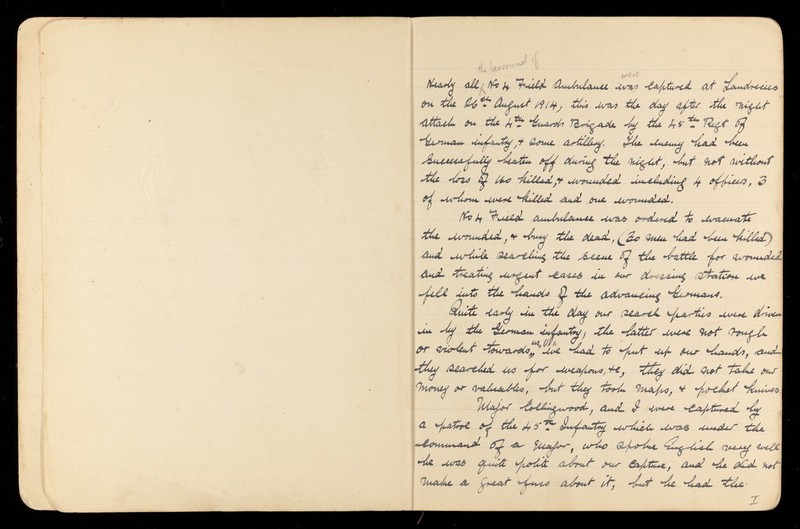 the personnel of
were
Nearly all No 4 Field Ambulance was captured at Landrecies
on the 26th August 1914, this was the day after the night
attack on the 4th Guards Brigade by the 45th Regt of
German infantry, & some artillery. The enemy had been
successfully beaten off during the night, but not without
the loss of 160 killed, & wounded including 4 officers, 3
of whom were killed and one wounded.
No 4 Field ambulance was ordered to evacuate
the wounded, & bury the dead, (30 men had been killed)
and while searching the scene of the battle for wounded
and treating urgent cases in our dressing station we
fell into the hands of the advancing Germans.
Quite early in the day our search parties were driven
in by the German infantry; the latter were not rough
or violent towards us, we had to put up our hands, and
they searched us for weapons, &c, they did not take our
money or valuables, but they took maps, & pocket knives.
Major Collingwood, and I were captured by
a patrol of the 45th Infantry which was under the
command of a Major, who spoke English very well
he was quite polite about our capture, and he did not
make a great fuss about it, but he had the
I